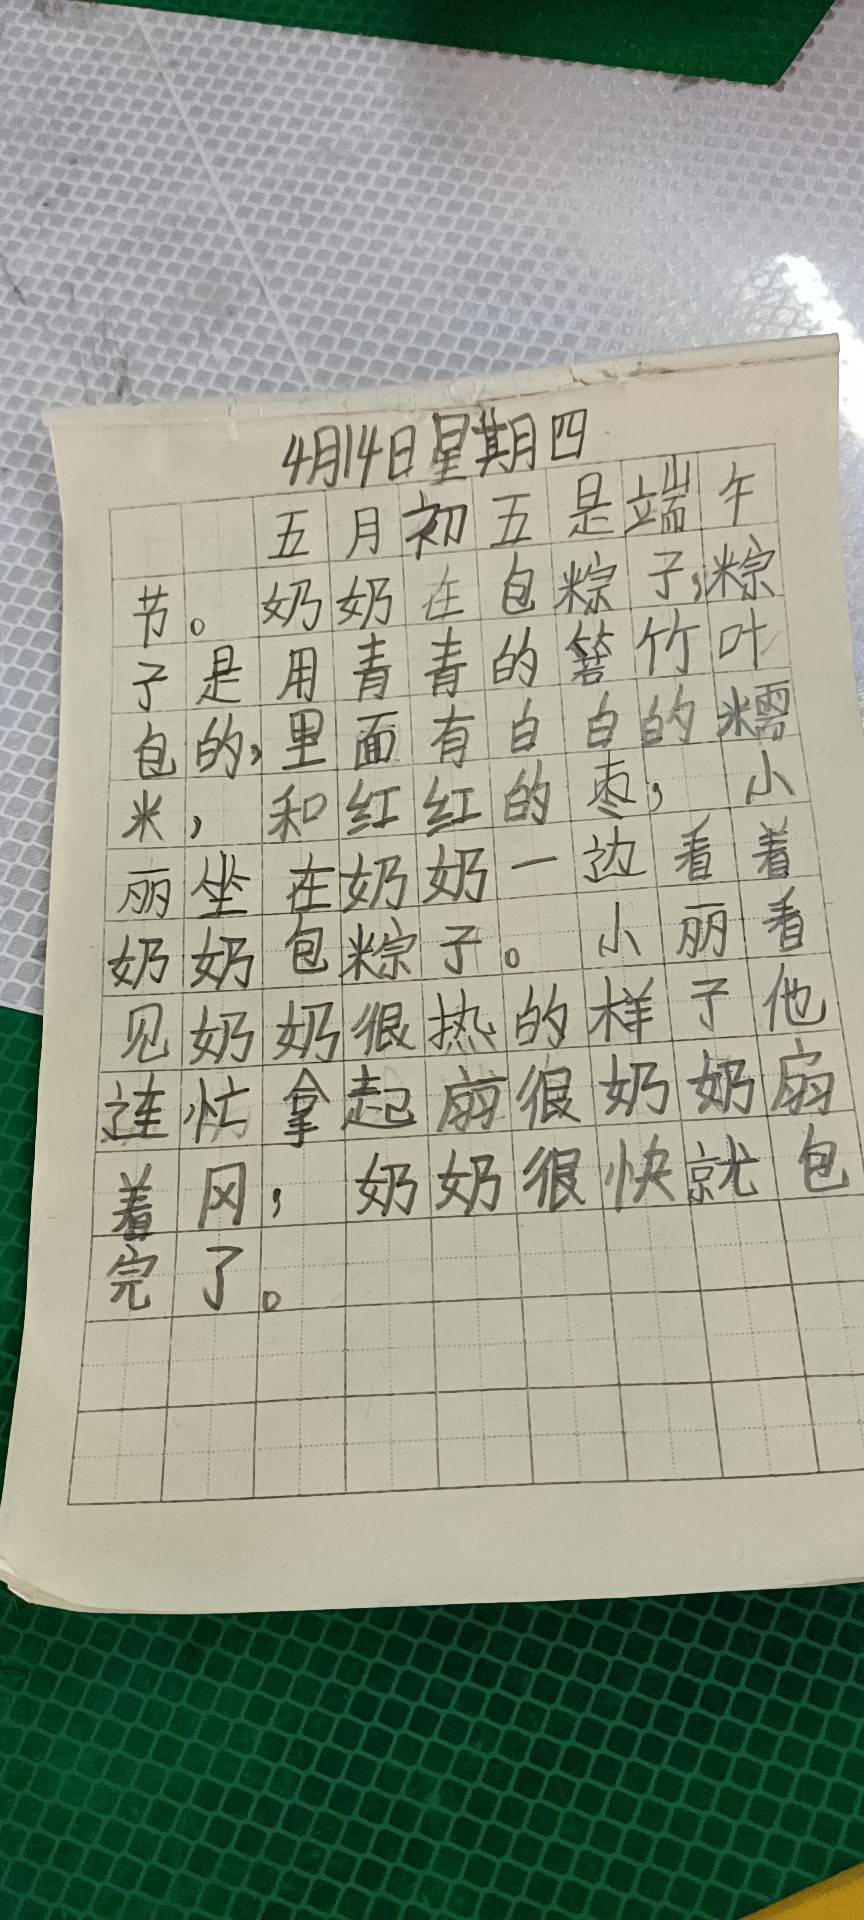 4月14日星期四
五月初五是端午
节。奶奶在包粽子,粽
子是用青青的箬竹叶
包的,里面有白白的糯
米,和红红的枣,小
丽坐在奶奶一边看着
奶奶包粽子。小丽看
见奶奶很热的样子他
连忙拿起扇很奶奶扇
着冈,奶奶很快就包
完了。